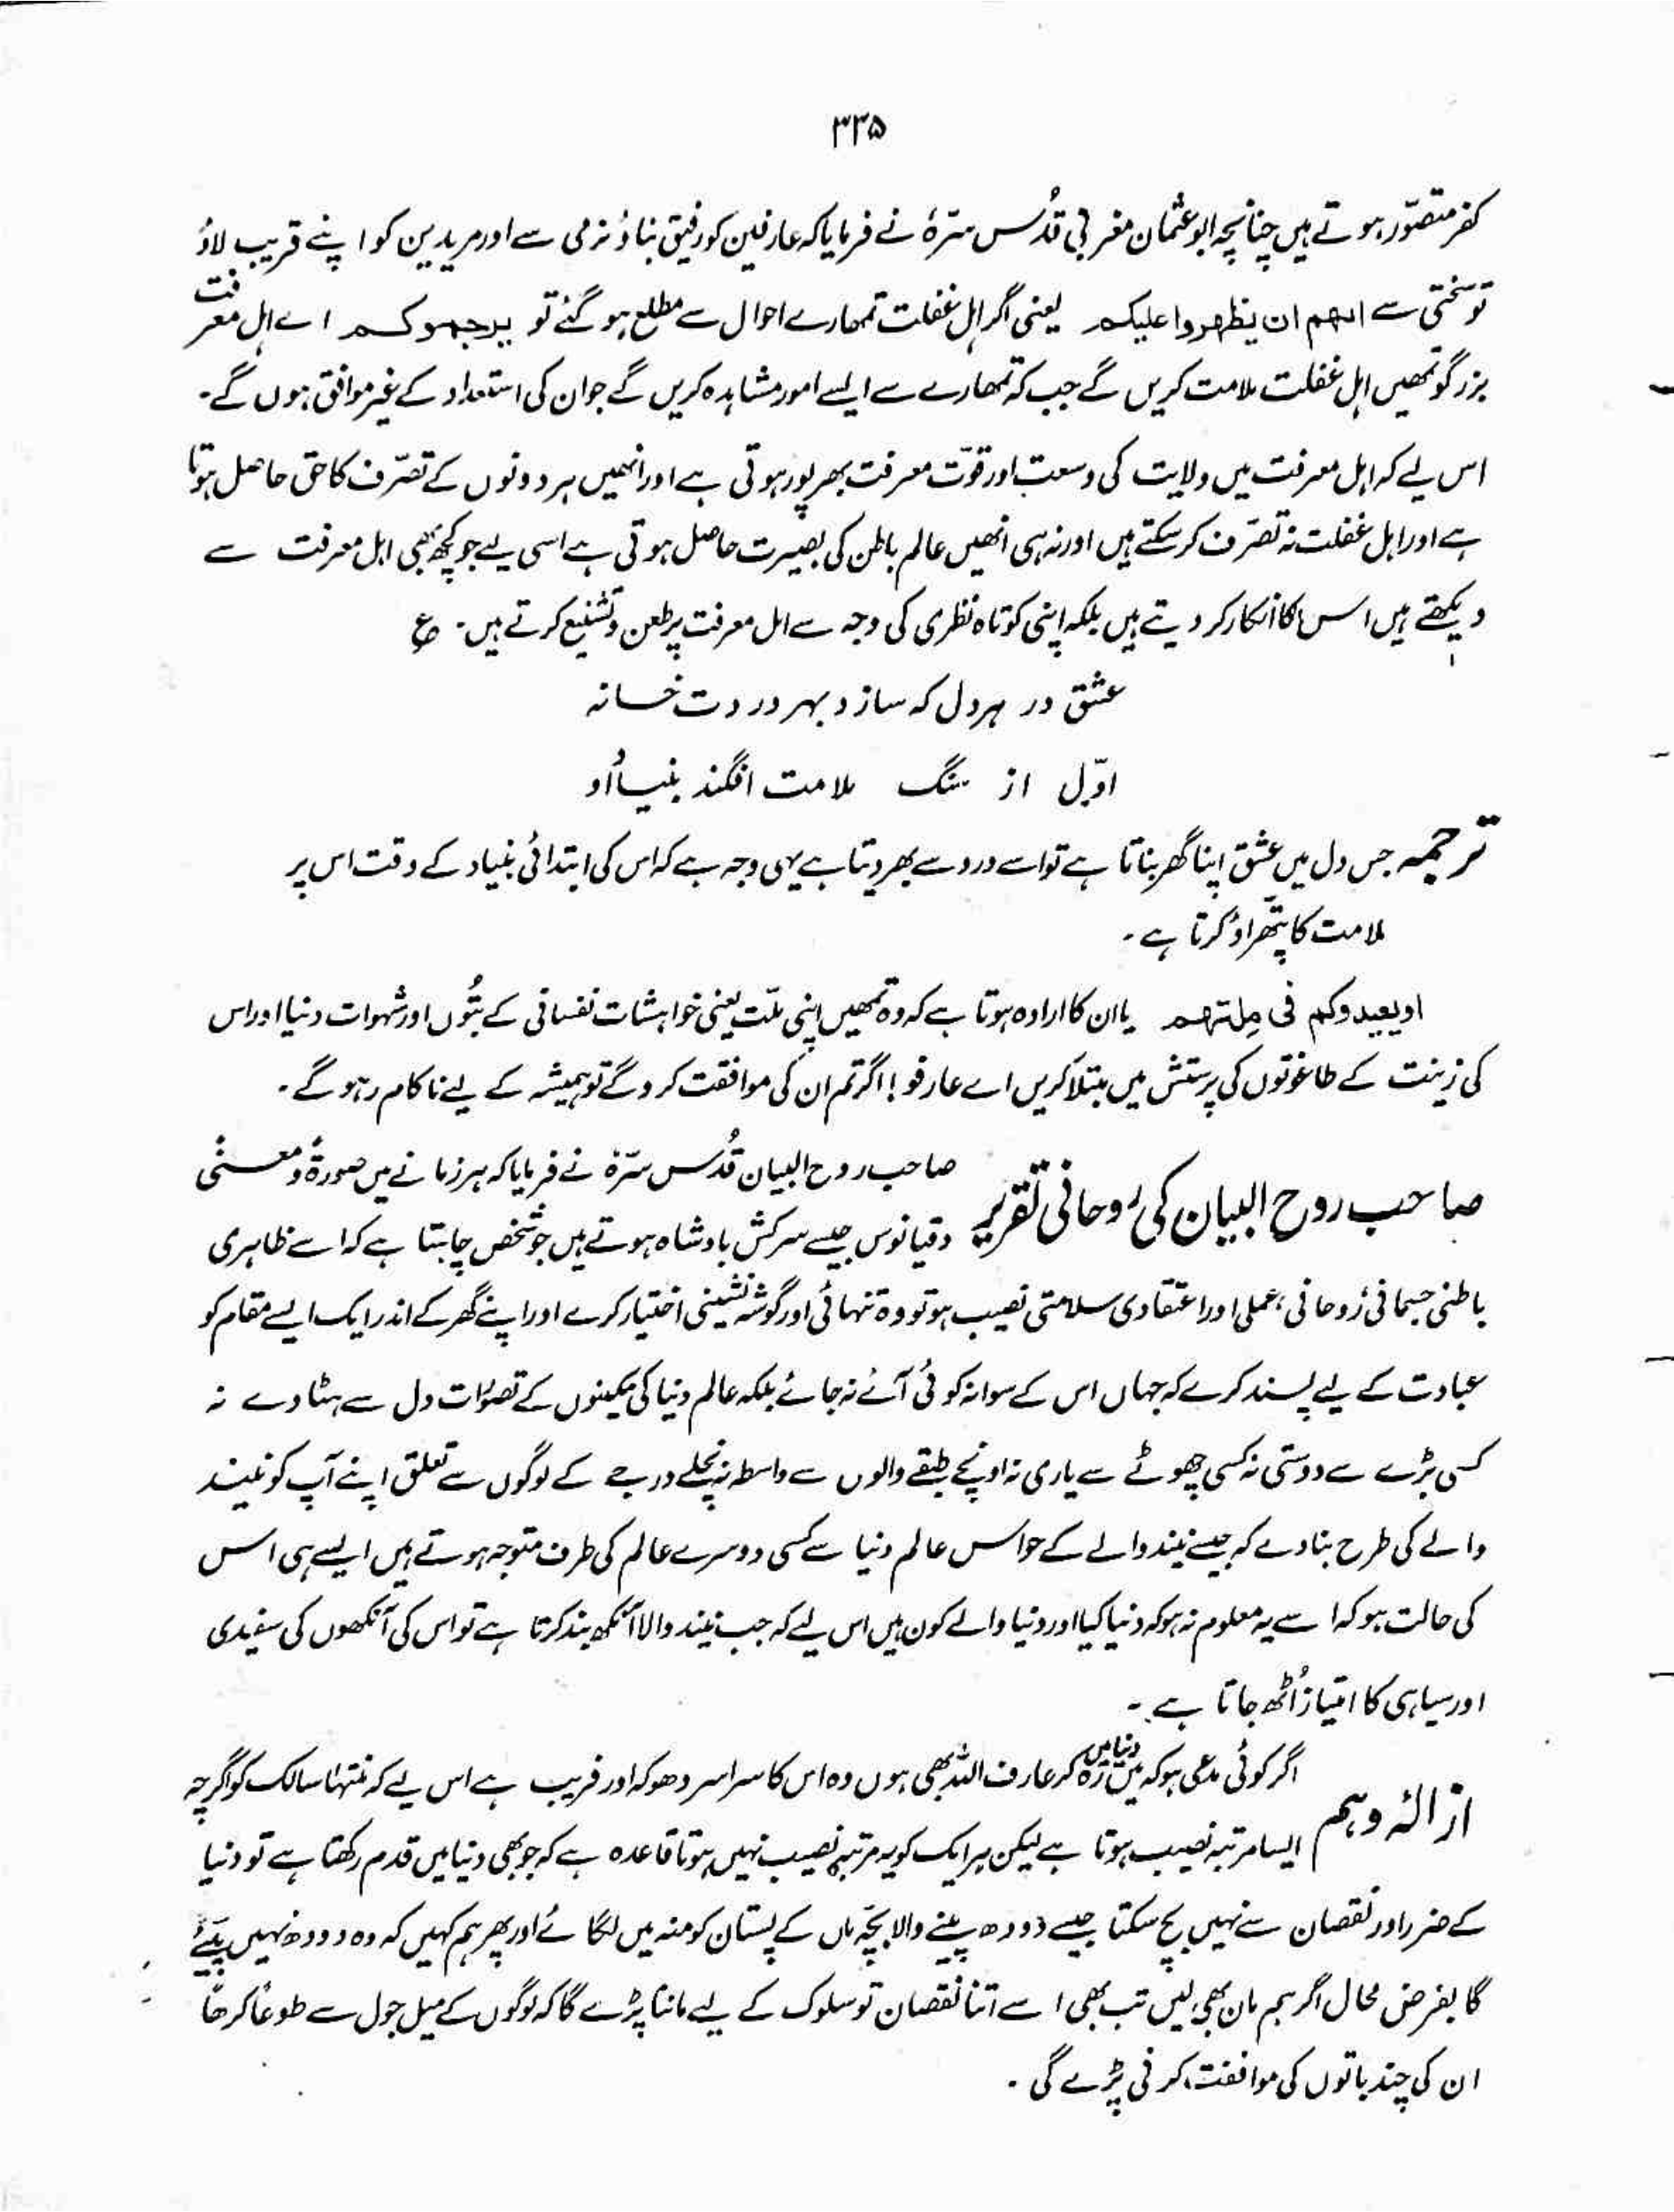 ۳۳۵
کفر متصوّر ہوتے ہیں چنانچہ ابو عثمان مغربی قُدّس سرّہٗ نے فرمایا کہ عارفین کو رفیق بناؤ نرمی سے اور مریدین کو اپنے قریب لاؤ
تو سختی سے انہم ان یظہروا علیکم یعنی اگر اہل غفلت تمہارے احوال سے مطلع ہو گئے تو یرجموکم اے اہل معرفت
بزرگو تمھیں اہل غفلت ملامت کریں گے جب کہ تمھارے سے ایسے امور مشاہدہ کریں گے جو ان کی استعداد کے غیر موافق ہوں گے۔
اس لیے کہ اہل معرفت میں ولایت کی وسعت اور قوّت معرفت بھرپور ہوتی ہے اور انھیں ہر دونوں کے تصرّف کا حق حاصل ہوتا
ہے اور اہل غفلت نہ تصرّف کر سکتے ہیں اور نہ ہی انھیں عالم باطن کی بصیرت حاصل ہوتی ہے اسی لیے جو کچھ بھی اہل معرفت سے
دیکھتے ہیں اس کا انکار کر دیتے ہیں بلکہ اپنی کوتاہ نظری کی وجہ سے اہل معرفت پر طعن و تشنیع کرتے ہیں۔ ع
عشق در ہر دل کہ سازد بہر دردت خانہ
اوّل از سنگ ملامت افگند بنیاد اُو
ترجمہ جس دل میں عشق اپنا گھر بناتا ہے تو اسے درد سے بھر دیتا ہے یہی وجہ ہے کہ اس کی ابتدائی بنیاد کے وقت اس پر
ملامت کا پتّھراؤ کرتا ہے۔
او یعیدوکم فی ملتہم یا ان کا ارادہ ہوتا ہے کہ وہ تمھیں اپنی ملّت یعنی خواہشات نفسانی کے بتُوں اور شہوات دنیا اور اس
کی زینت کے طاغوتوں کی پرستش میں مبتلا کریں اے عارفو! اگر تم ان کی موافقت کرو گے تو ہمیشہ کے لیے ناکام رہو گے۔
صاحب روح البیان کی رُوحانی تقریر صاحب روح البیان قُدّس سرّہٗ نے فرمایا کہ ہر زمانے میں صورۃً و معنًی
دقیانوس جیسے سرکش بادشاہ ہوتے ہیں جو شخص چاہتا ہے کہ اسے ظاہری
باطنی جسمانی رُوحانی، عملی اور اعتقادی سلامتی نصیب ہو تو وہ تنہائی اور گوشہ نشینی اختیار کرے اور اپنے گھر کے اندر ایک ایسے مقام کو
عبادت کے لیے پسند کرے کہ جہاں اس کے سوا نہ کوئی آئے نہ جائے بلکہ عالم دنیا کی مکینوں کے تصوّرات دل سے ہٹا دے نہ
کسی بڑے سے دوستی نہ کسی چھوٹے سے یاری نہ اونچے طبقے والوں سے واسطہ نہ نچلے درجے کے لوگوں سے تعلق اپنے آپ کو نیند
والے کی طرح بنا دے کہ جیسے نیند والے کے حواس عالم دنیا سے کسی دوسرے عالم کی طرف متوجہ ہوتے ہیں ایسے ہی اس
کی حالت ہو کہ اسے یہ معلوم نہ ہو کہ دنیا کیا اور دنیا والے کون ہیں اس لیے کہ جب نیند والا آنکھ بند کرتا ہے تو اس کی آنکھوں کی سفیدی
اور سیاہی کا امتیاز اُٹھ جاتا ہے۔
ازالۂ وہم اگر کوئی مدعی ہو کہ میں دنیا میں رہ کر عارف اللہ بھی ہوں وہ اس کا سراسر دھوکہ اور فریب ہے اس لیے کہ منتہا سالک کو اگرچہ
ایسا مرتبہ نصیب ہوتا ہے لیکن ہر ایک کو یہ مرتبہ نصیب نہیں ہوتا قاعدہ ہے کہ جو بھی دنیا میں قدم رکھتا ہے تو دنیا
کے ضرر اور نقصان سے نہیں بچ سکتا جیسے دودھ پینے والا بچّہ ماں کے پستان کو منہ میں لگائے اور پھر ہم کہیں کہ وہ دودھ نہیں پیئے
گا بفرض محال اگر ہم مان بھی لیں تب بھی اسے اتنا نقصان تو سلوک کے لیے ماننا پڑے گا کہ لوگوں کے میل جول سے طوعًا کرھًا
ان کی چند باتوں کی موافقت کرنی پڑے گی۔